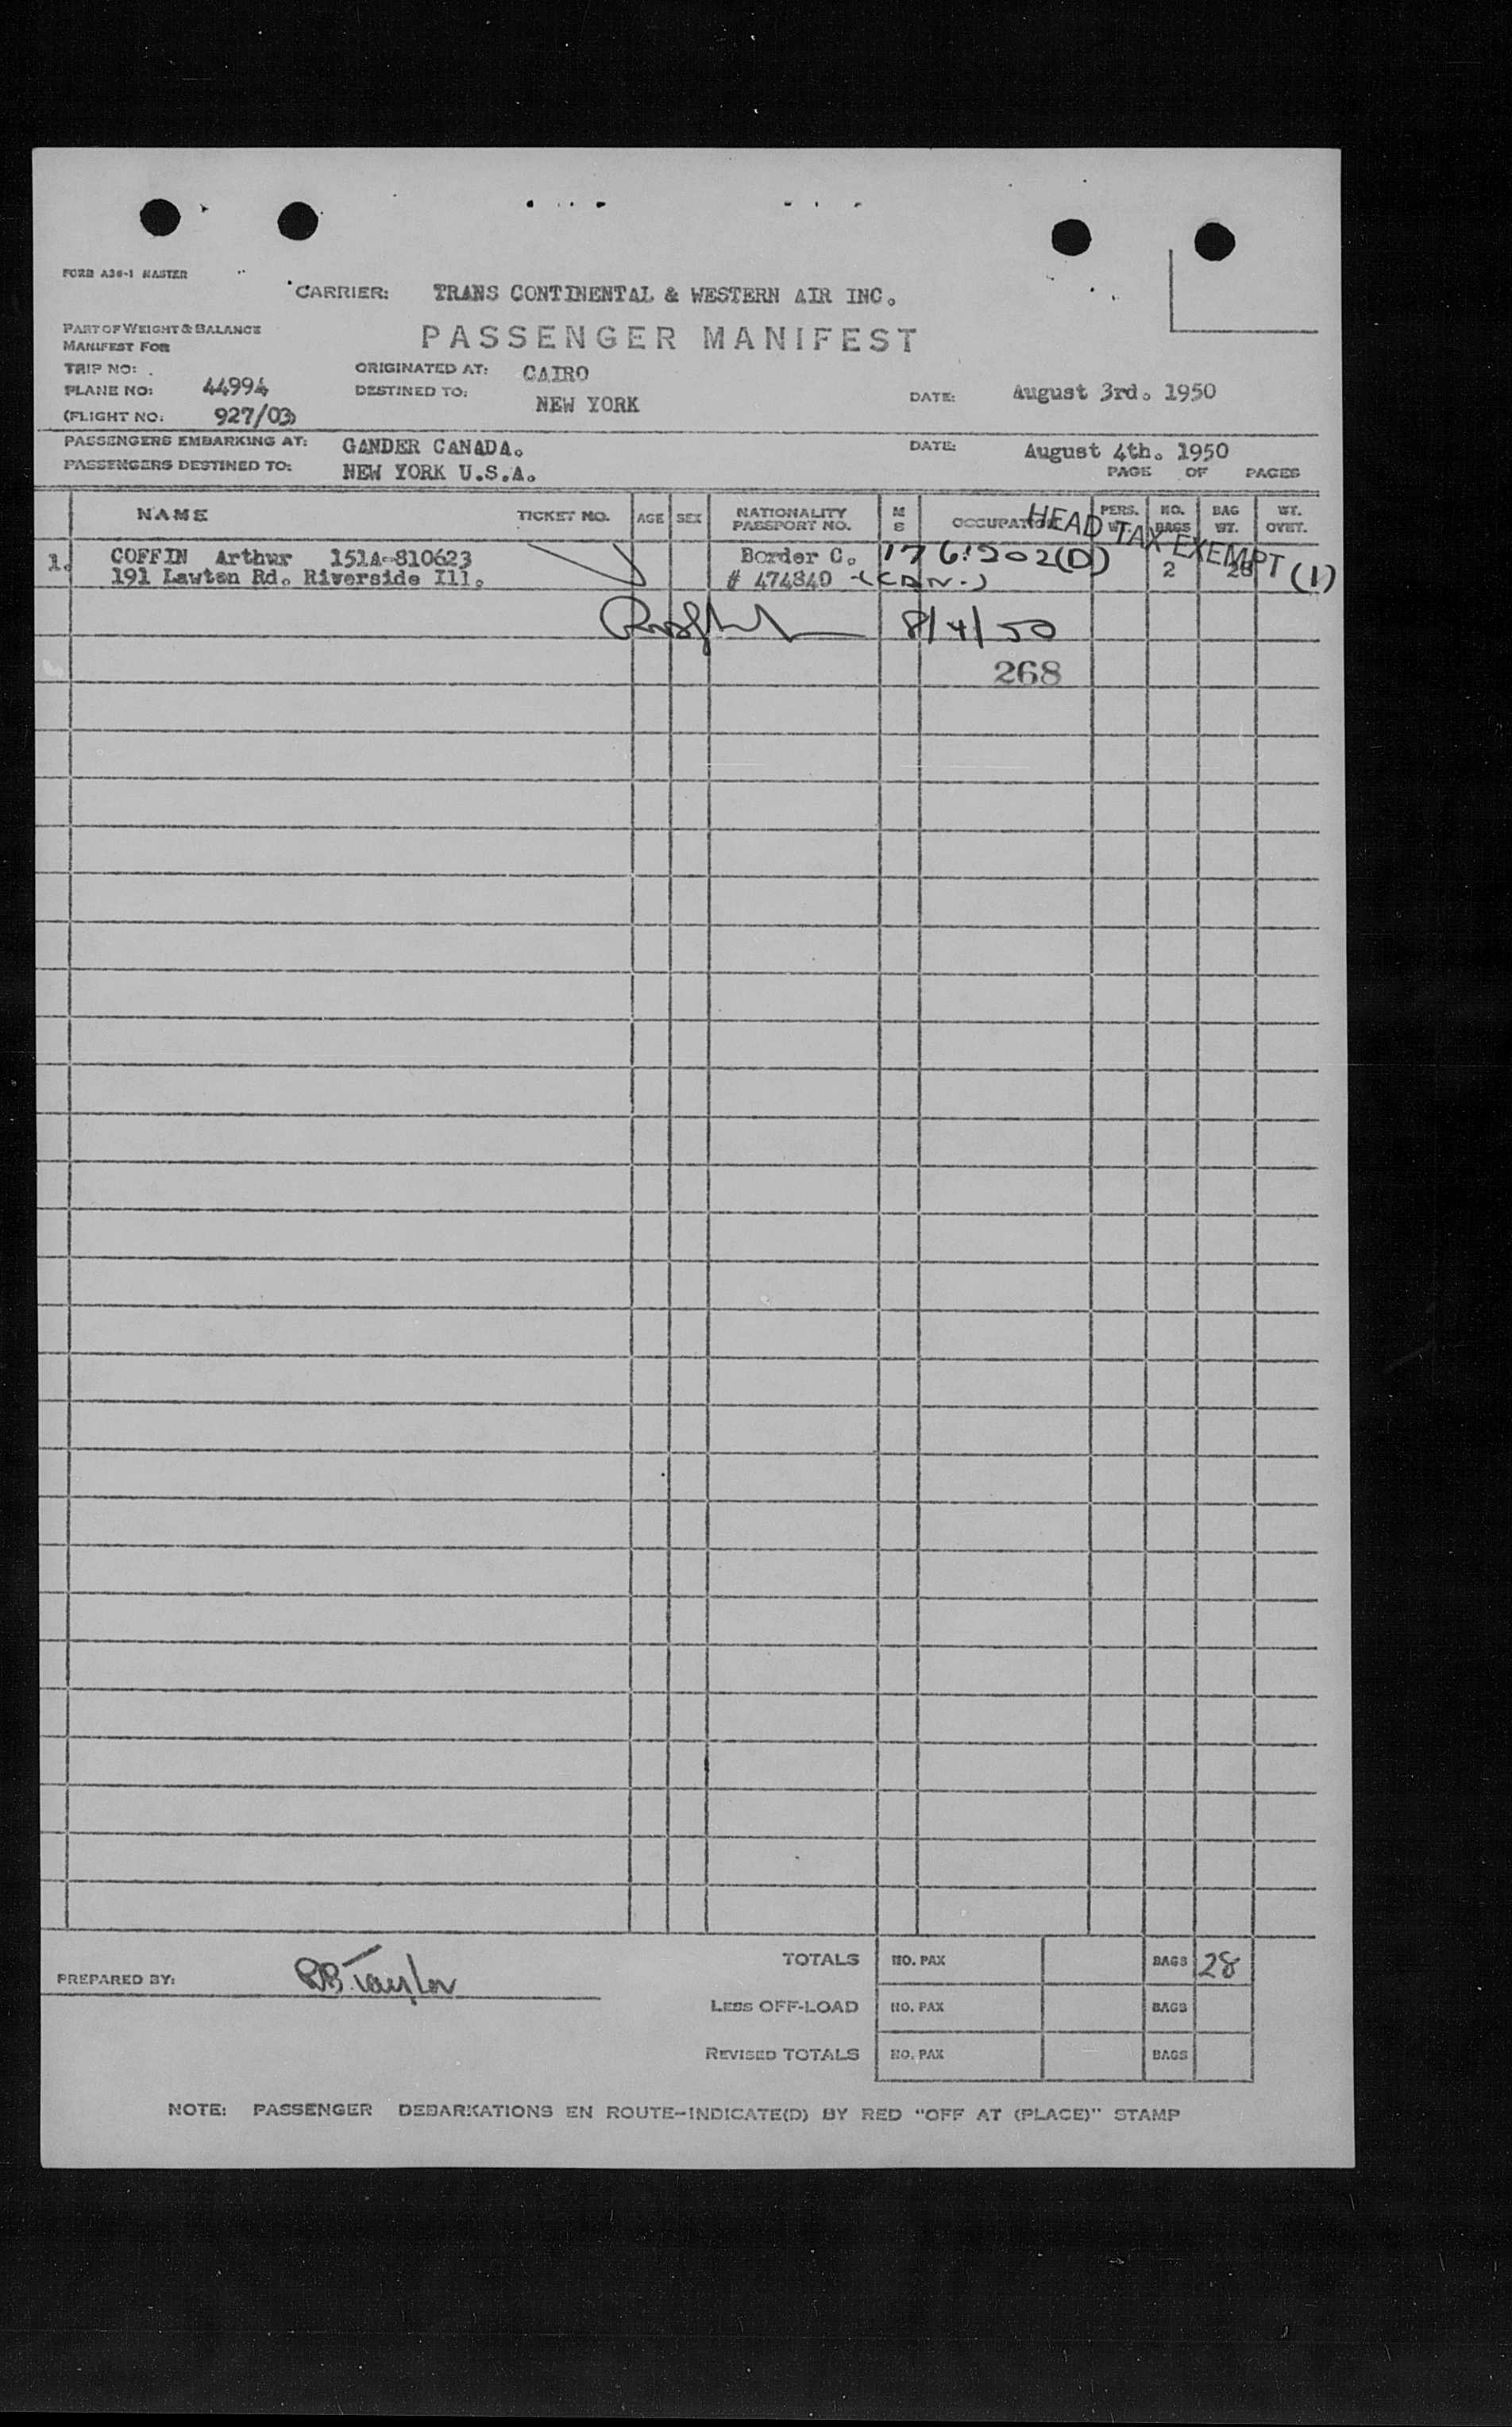 FORM A36-1 MASTER
CARRIER: TRANS CONTINENTAL & WESTERN AIR INC.
PART OF WEIGHT & BALANCE
MANIFEST FOR
PASSENGER MANIFEST
TRIP NO:
ORIGINATED AT: CAIRO
PLANE NO: 44994
DESTINED TO: NEW YORK
DATE: August 3rd. 1950
(FLIGHT NO. 927/03)
PASSENGERS EMBARKING AT: GANDER CANADA.
DATE: August 4th. 1950
PASSENGERS DESTINED TO: NEW YORK U.S.A.
PAGE OF PAGES
NAME TICKET NO. AGE SEX NATIONALITY PASSPORT NO. M S OCCUPATION PERS. WT. NO. BAGS BAG WT. WT. OVET.
HEAD TAX EXEMPT (1)
1. COFFIN Arthur 151A-810623 Border C. 176.202(D)
191 Lawton Rd. Riverside Ill. # 474840 (CDN.) 2 28
8/4/50
268
TOTALS NO. PAX BAGS 28
PREPARED BY: RB. Taylor
LESS OFF-LOAD NO. PAX BAGS
REVISED TOTALS NO. PAX BAGS
NOTE: PASSENGER DEBARKATIONS EN ROUTE-INDICATE(D) BY RED "OFF AT (PLACE)" STAMP